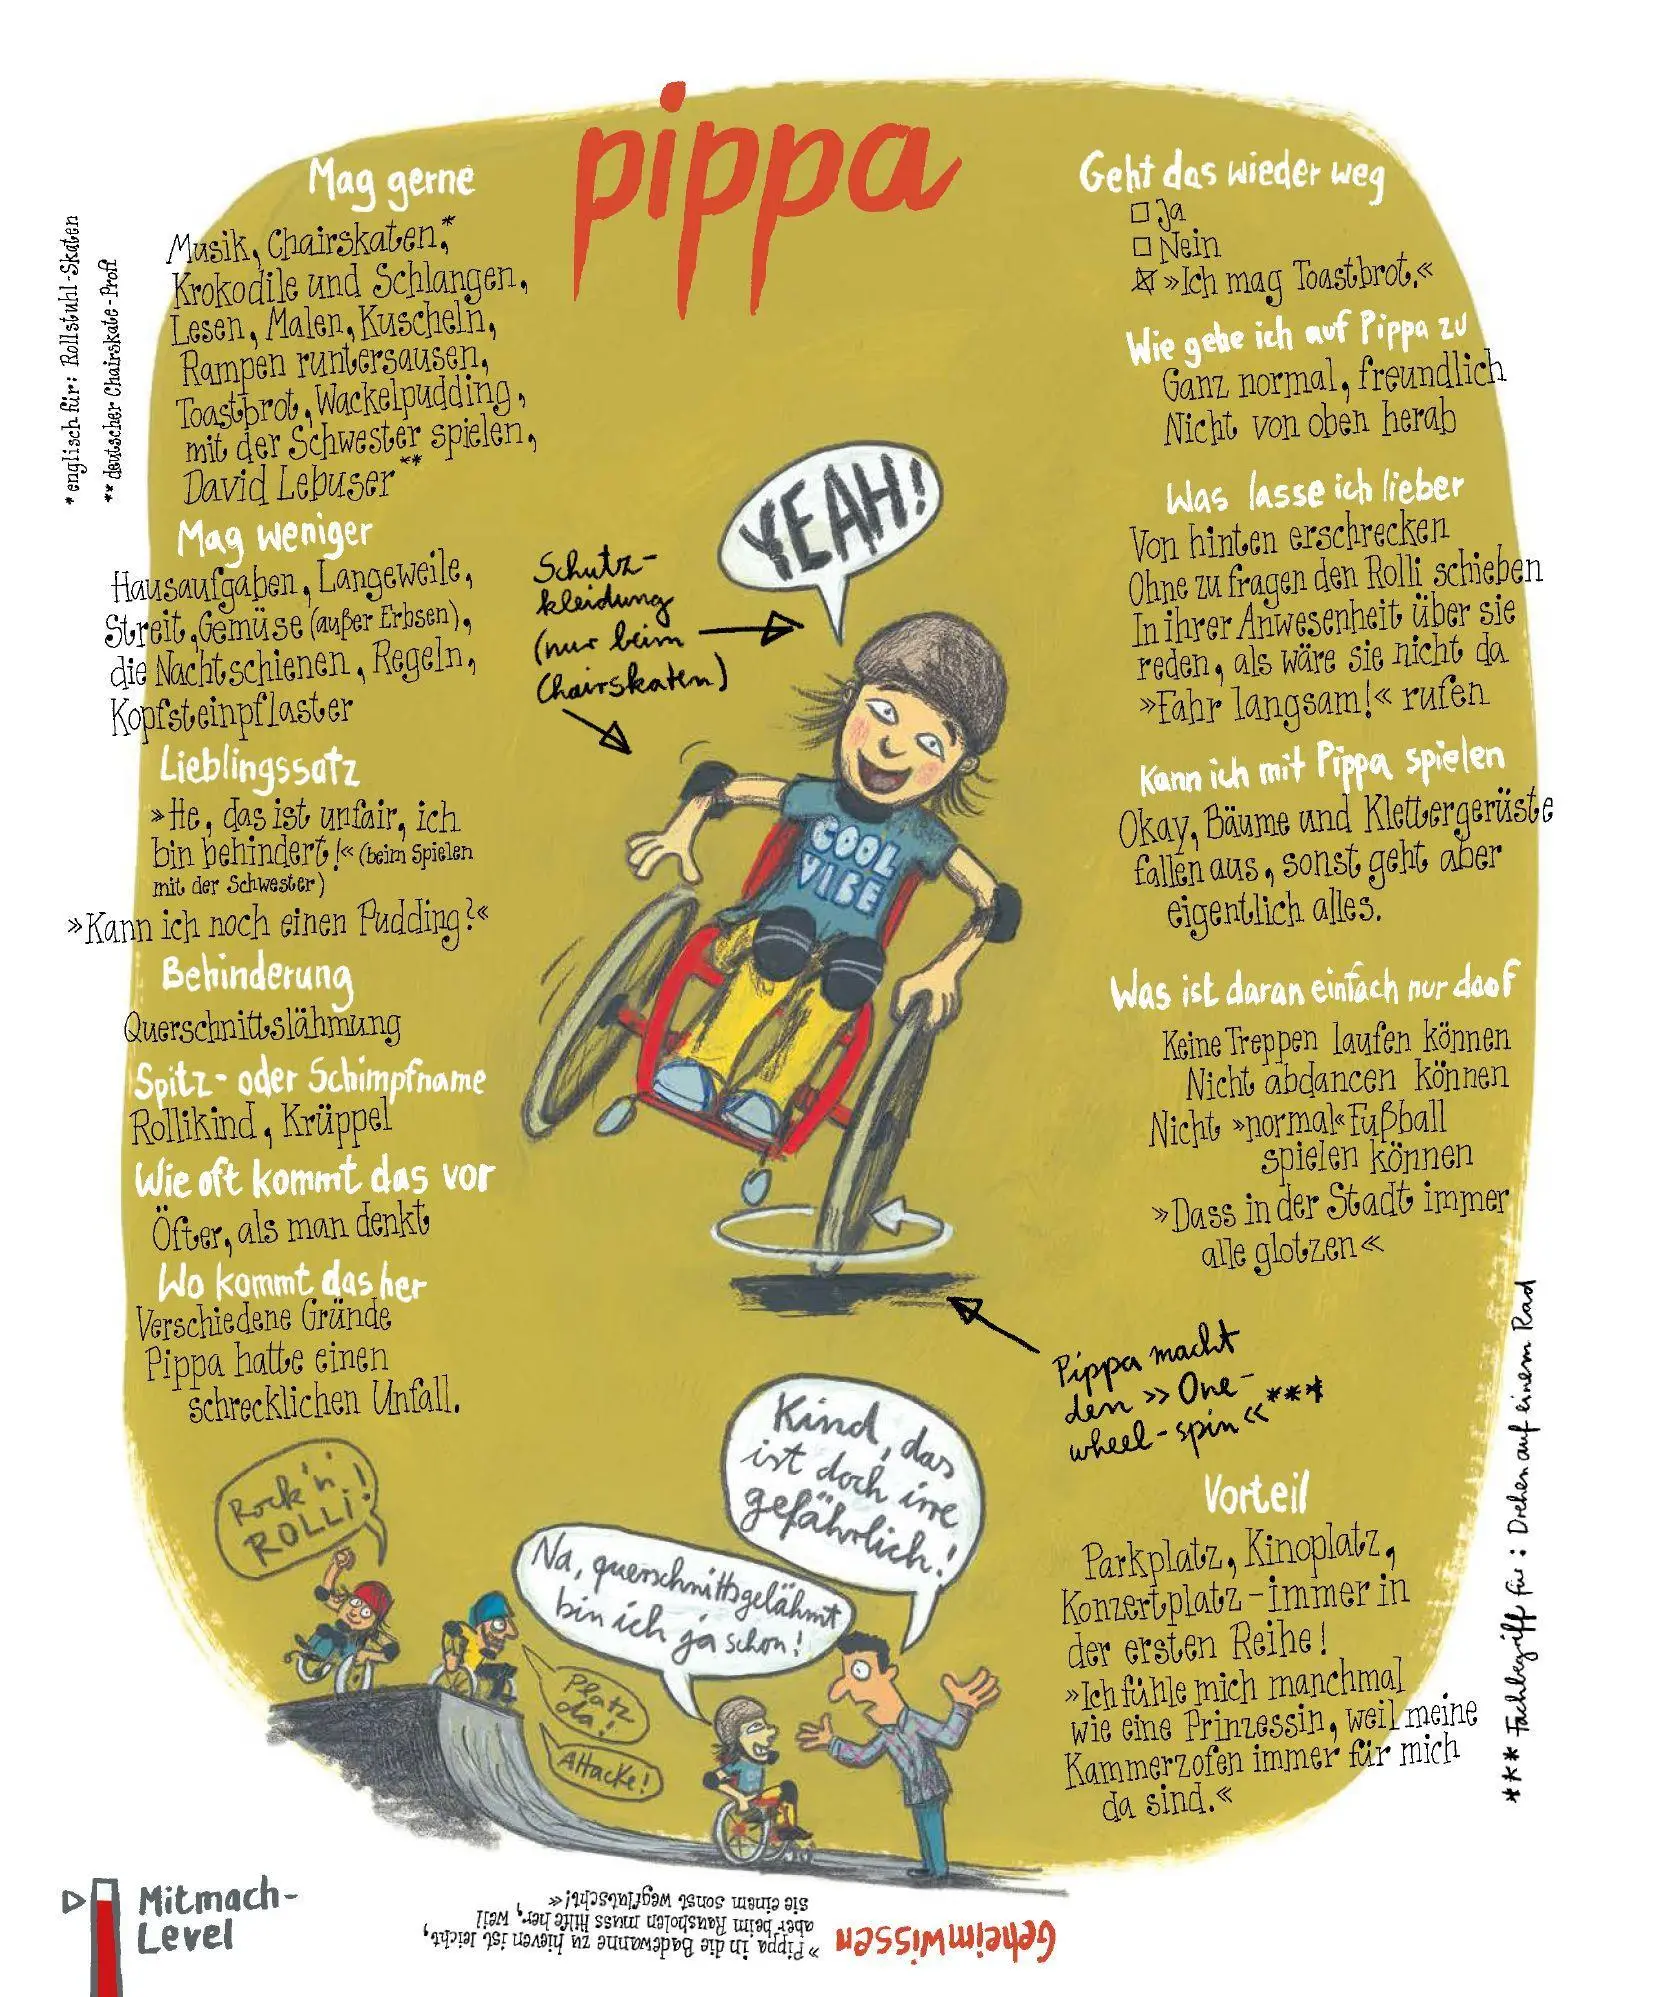 pippa
Mag gerne
Musik, Chairskaten,*
Krokodile und Schlangen,
Lesen, Malen, Kuscheln,
Rampen runtersausen,
Toastbrot, Wackelpudding,
mit der Schwester spielen,
David Lebuser**
* englisch für: Rollstuhl-Skaten
** deutscher Chairskate-Profi
Mag weniger
Hausaufgaben, Langeweile,
Streit, Gemüse (außer Erbsen),
die Nachtschienen, Regeln,
Kopfsteinpflaster
Lieblingssatz
»He, das ist unfair, ich
bin behindert!« (beim Spielen
mit der Schwester)
»Kann ich noch einen Pudding?«
Behinderung
Querschnittslähmung
Spitz- oder Schimpfname
Rollikind, Krüppel
Wie oft kommt das vor
Öfter, als man denkt
Wo kommt das her
Verschiedene Gründe
Pippa hatte einen
schrecklichen Unfall.
YEAH!
Schutz-
kleidung
(nur beim
Chairskaten)
COOL
VIBE
Geht das wieder weg
Ja
Nein
»Ich mag Toastbrot.«
Wie gehe ich auf Pippa zu
Ganz normal, freundlich
Nicht von oben herab
Was lasse ich lieber
Von hinten erschrecken
Ohne zu fragen den Rolli schieben
In ihrer Anwesenheit über sie
reden, als wäre sie nicht da
»Fahr langsam!« rufen
Kann ich mit Pippa spielen
Okay, Bäume und Klettergerüste
fallen aus, sonst geht aber
eigentlich alles.
Was ist daran einfach nur doof
Keine Treppen laufen können
Nicht abdancen können
Nicht »normal« Fußball
spielen können
»Dass in der Stadt immer
alle glotzen«
Pippa macht
den »One-
wheel-spin«***
*** Fachbegriff für: Drehen auf einem Rad
Vorteil
Parkplatz, Kinoplatz,
Konzertplatz – immer in
der ersten Reihe!
»Ich fühle mich manchmal
wie eine Prinzessin, weil meine
Kammerzofen immer für mich
da sind.«
Rock'n'
ROLLI!
Platz
da!
Attacke!
Kind, das
ist doch irre
gefährlich!
Na, querschnittsgelähmt
bin ich ja schon!
Mitmach-
Level
Geheimwissen
»Pippa in die Badewanne zu hieven ist leicht,
aber beim Rausholen muss Hilfe her, weil
sie einem sonst wegflutscht!«